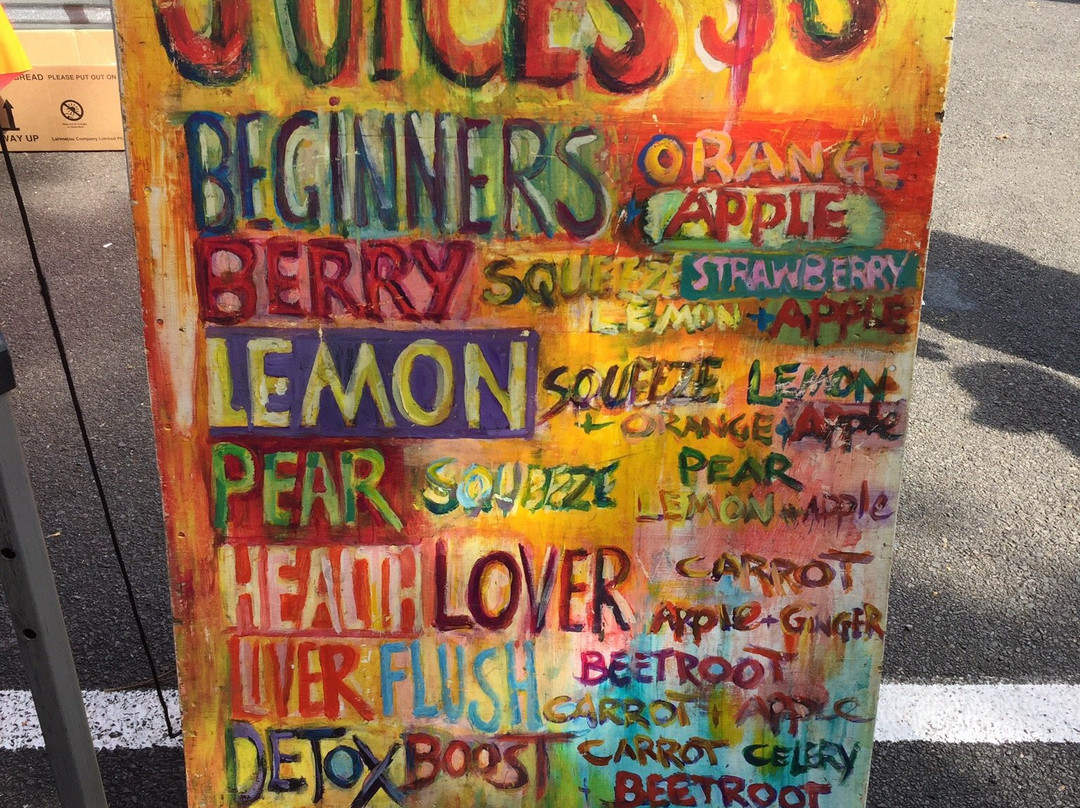 JUICES $8
BREAD PLEASE PUT OUT ON
WAY UP
BEGINNERS ORANGE
+ APPLE
BERRY SQUEEZE STRAWBERRY
LEMON + APPLE
LEMON SQUEEZE LEMON
+ ORANGE + Apple
PEAR SQUEEZE PEAR
LEMON + Apple
HEALTH LOVER CARROT
Apple + GINGER
LIVER FLUSH BEETROOT
CARROT + APPLE
DETOX BOOST CARROT CELERY
+ BEETROOT